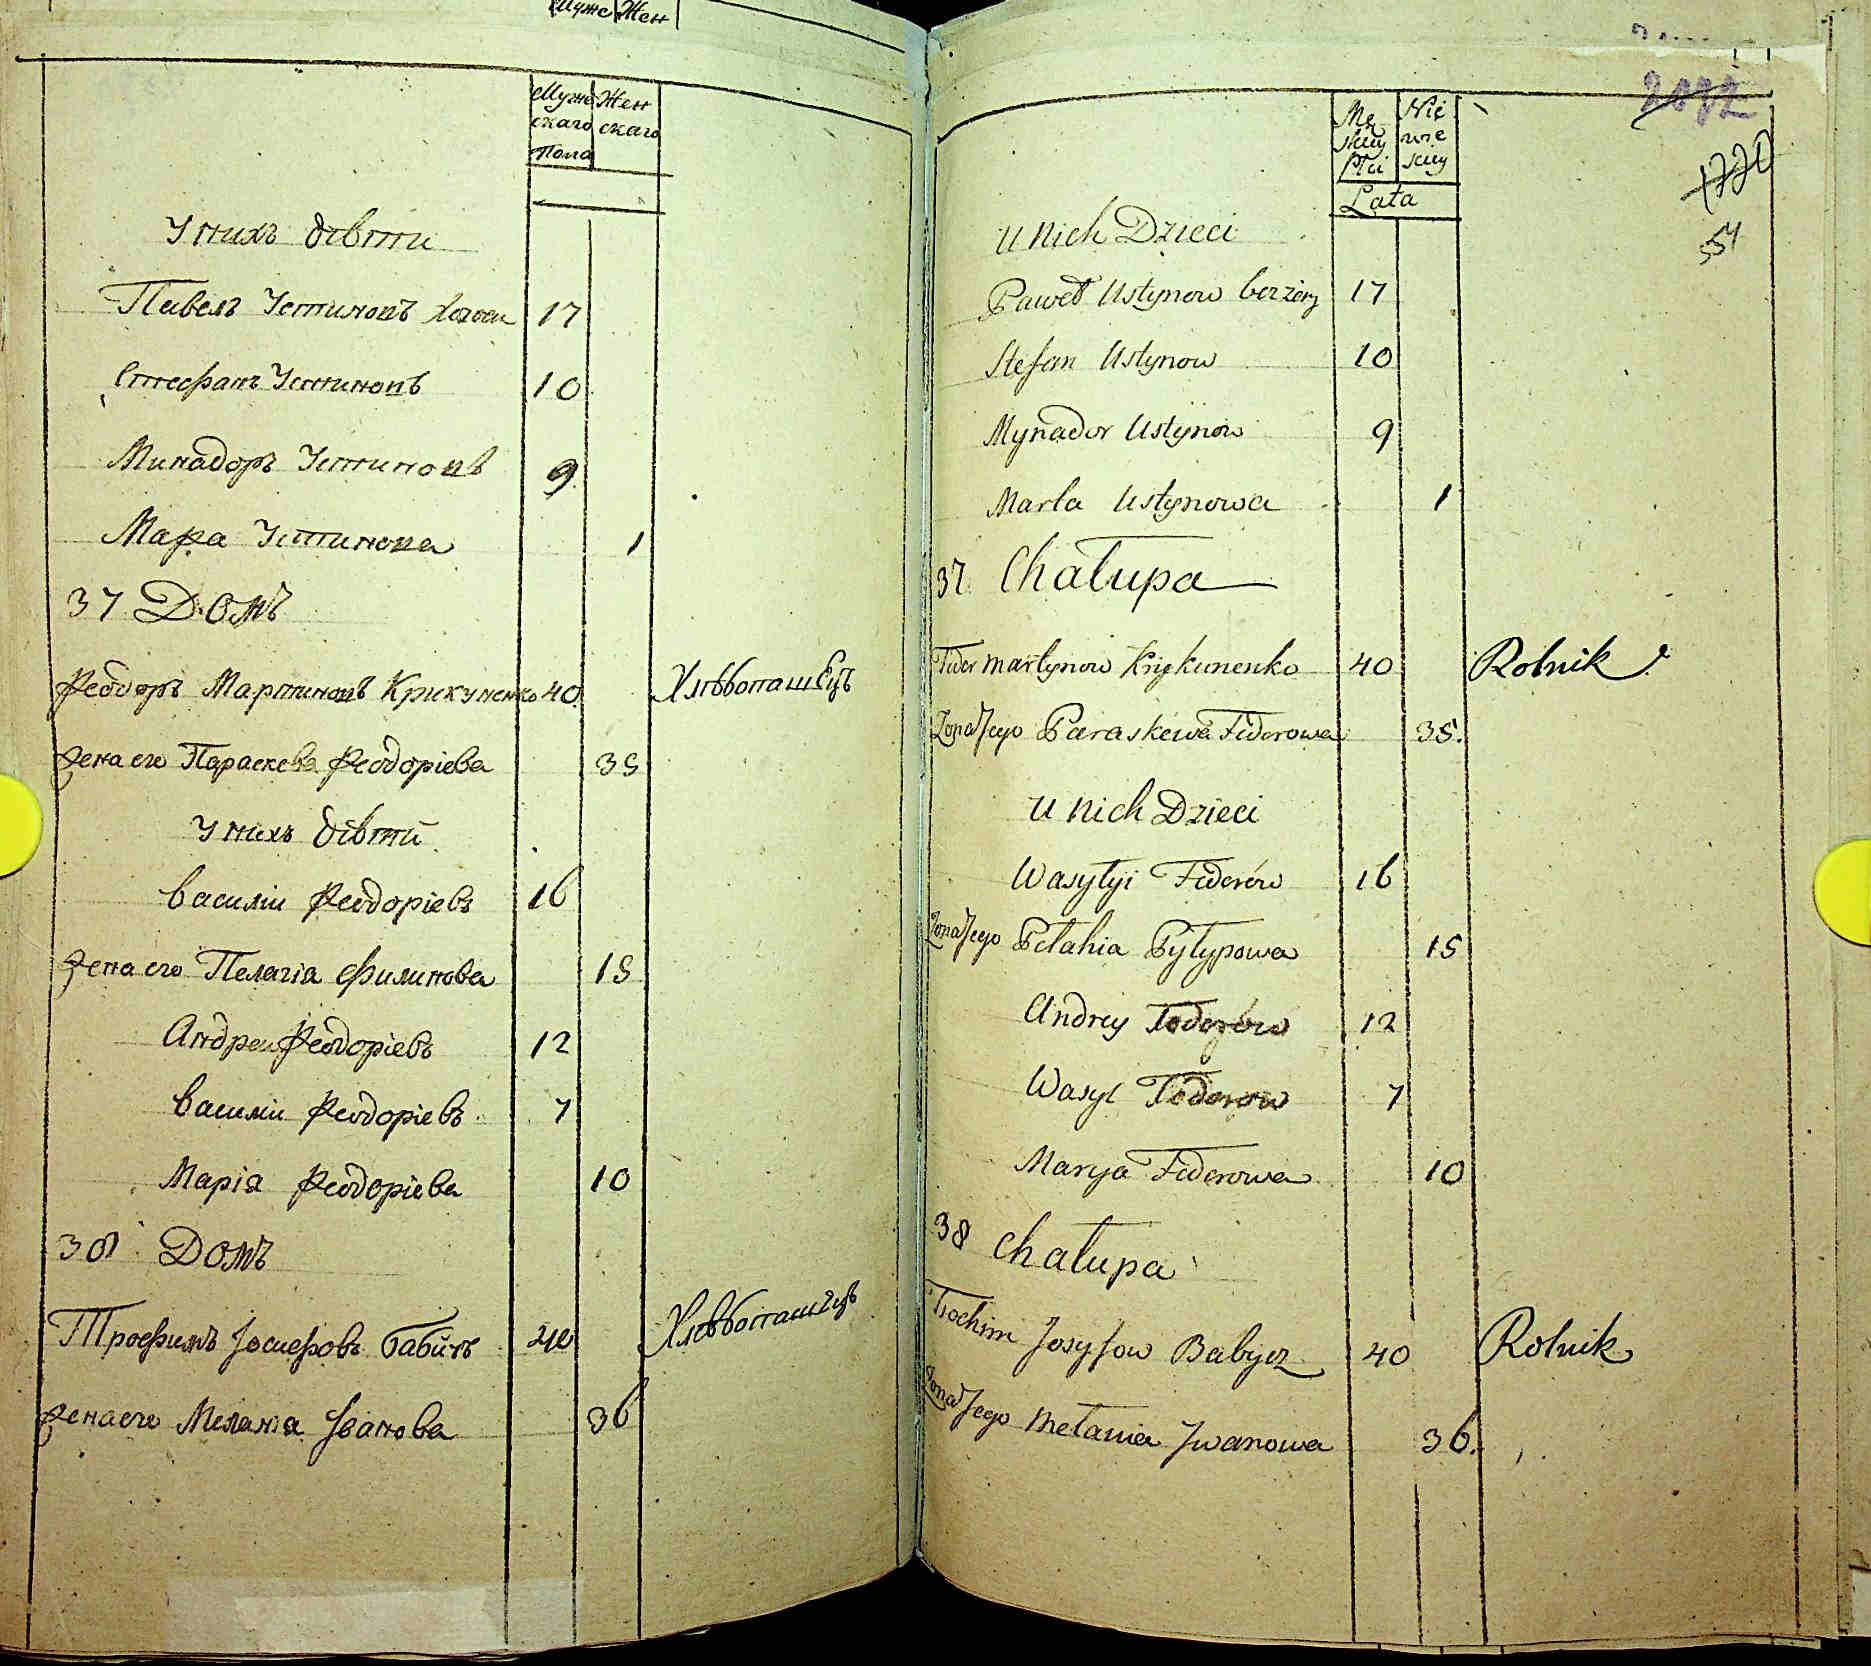 Муже Жен
Муже Жен
скаго скаго
Пола
У нихъ дѣти
Павелъ Устиновъ холосъ 17
Стефанъ Устиновъ 10
Минадоръ Устиновъ 9
Мара Устинова 1
37 Домъ
Феодоръ Мартиновъ Крикуненко 40 Хлѣбопашецъ
Жена его Параскева Феодоріева 35
У нихъ дѣти
Василіи Феодоріевъ 16
Жена его Пелагіа Филипова 15
Андреи Феодоріевъ 12
Василіи Феодоріевъ 7
Маріа Феодоріева 10
38 Домъ
Трофимъ Іосифовъ Бабичъ 40 Хлѣбопашецъ
Жена его Меланіа Іванова 36
2082
1770
551
Mę Nie
skiey wie
Płci skiey
Lata
U Nich Dzieci
Paweł Ustynow bezżeny 17
Stefan Ustynow 10
Mynador Ustynow 9
Marta Ustynowa 1
37 Chałupa
Fider Martynow Krykunenko 40 Rolnik
Zona Jego Paraskewa Fiderowa 35.
U Nich Dzieci
Wasylyi Fiderów 16
Zona Jego Pelahia Pylypowa 15
Andrey Fedorów 12
Wasyl Fedorow 7
Marya Fiderowa 10
38 Chałupa
Trochim Josyfow Babycz 40 Rolnik
Zona Jego Melania Jwanowa 36.